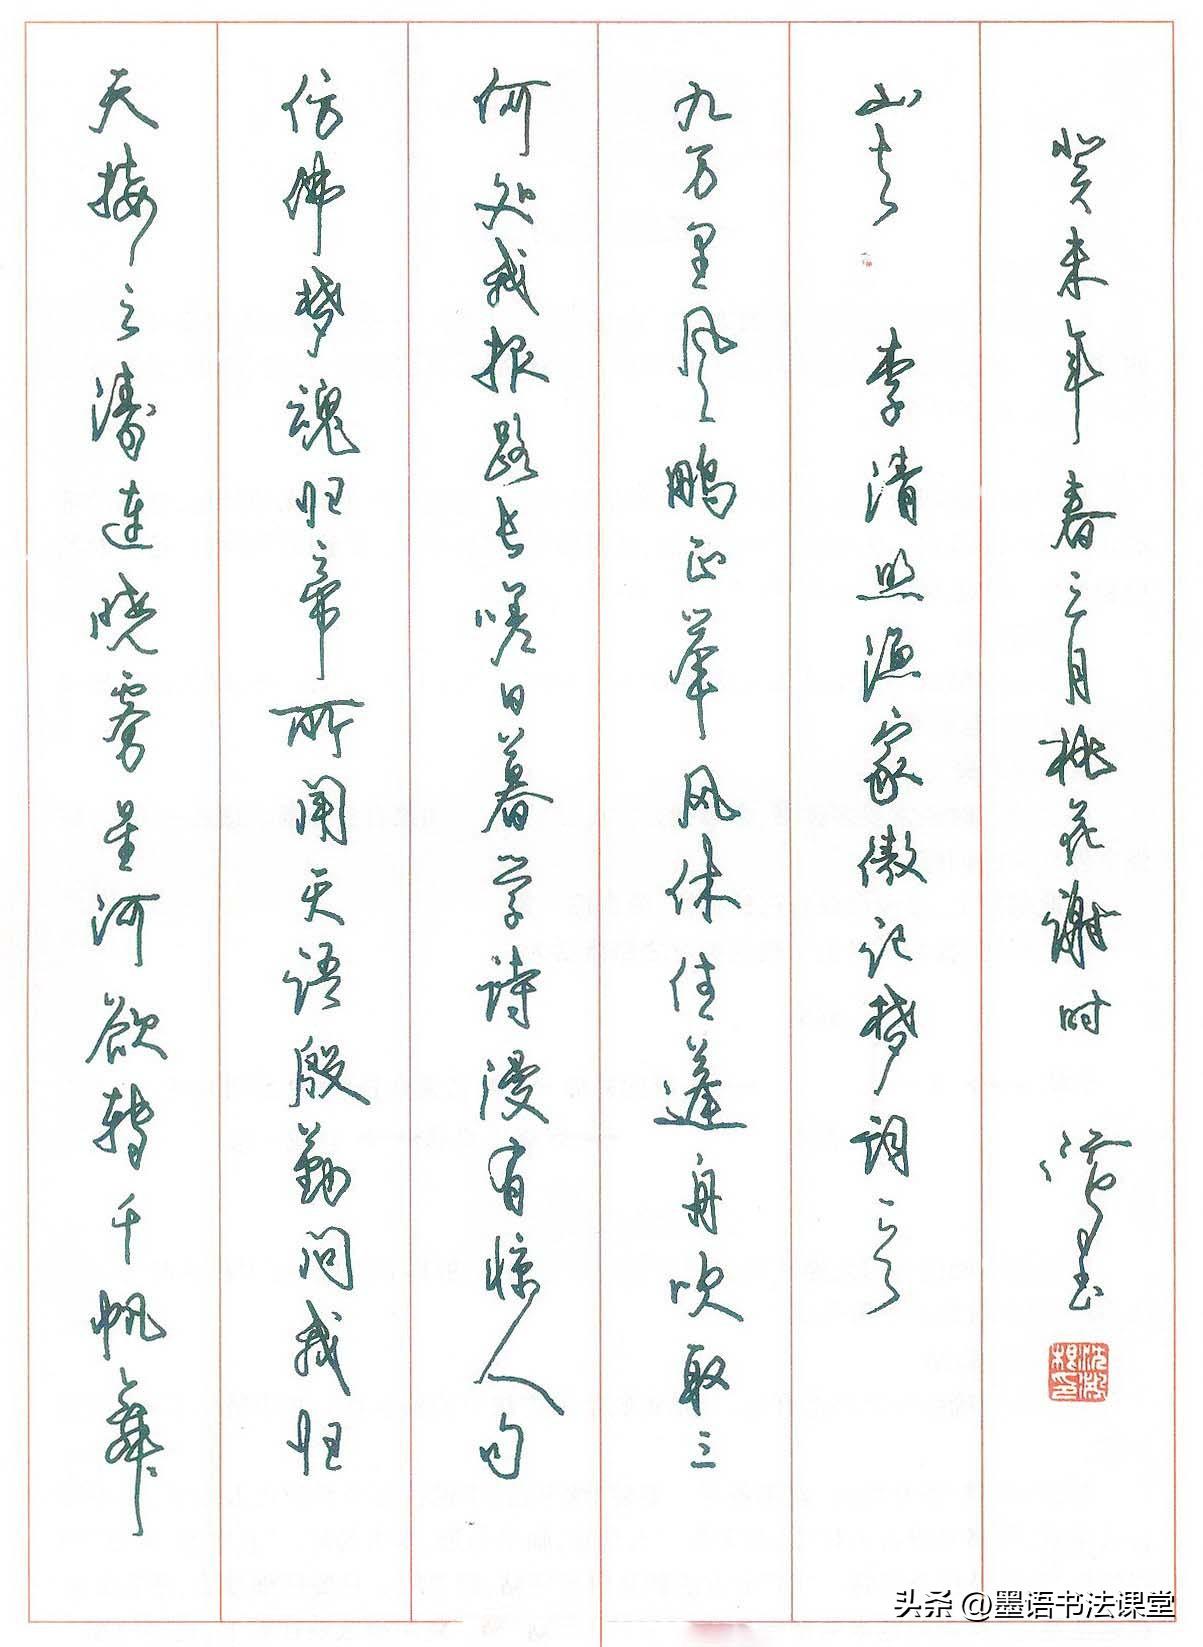 天接云涛连晓雾星河欲转千帆舞
仿佛梦魂归帝所闻天语殷勤问我归
何处我报路长嗟日暮学诗漫有惊人句
九万里风鹏正举风休住蓬舟吹取三
山去 李清照渔家傲记梦词一首
癸未年春三月桃花谢时
沈鸿根印
头条 @墨语书法课堂